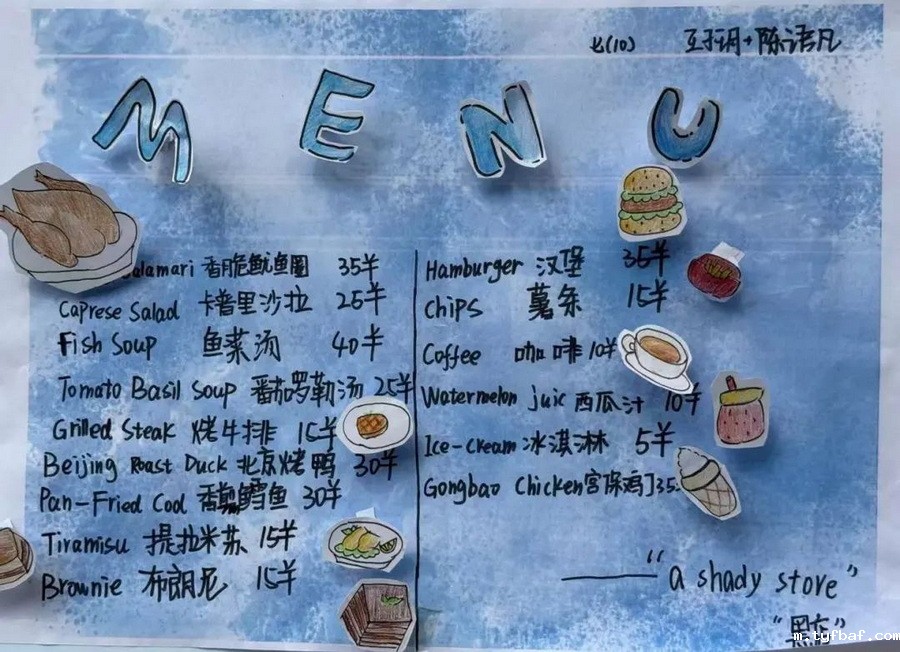 七(10) 陈语凡
MENU
Calamari 香脆鱿鱼圈 35羊
Caprese Salad 卡普里沙拉 25羊
Fish Soup 鱼菜汤 40羊
Tomato Basil Soup 番茄罗勒汤 25羊
Grilled Steak 烤牛排 15羊
Beijing Roast Duck 北京烤鸭 30羊
Pan-Fried Cod 香煎鳕鱼 30羊
Tiramisu 提拉米苏 15羊
Brownie 布朗尼 15羊
Hamburger 汉堡 35羊
Chips 薯条 15羊
Coffee 咖啡 10羊
Watermelon juic 西瓜汁 10羊
Ice-cream 冰淇淋 5羊
Gongbao Chicken 宫保鸡丁 35
——“a shady store”
“黑店”
m.tyfbaf.com